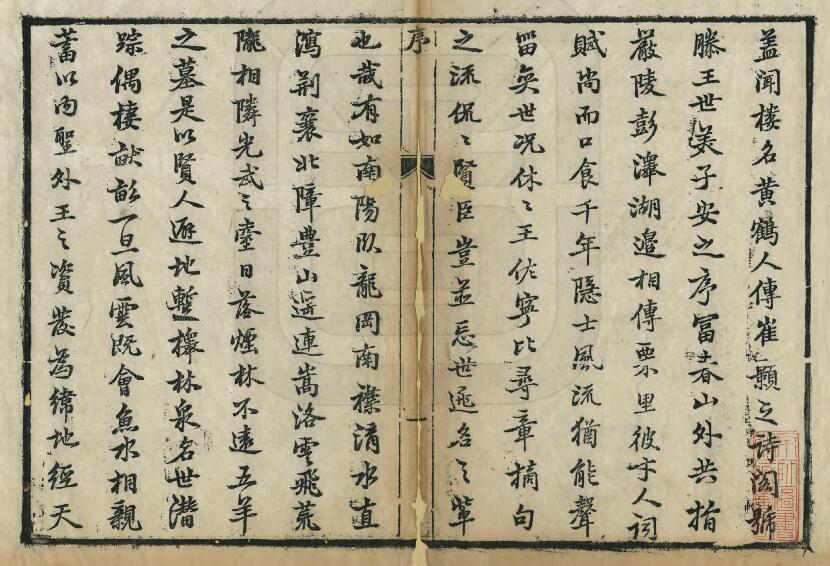 蓋聞楼名黄鶴人傳崔顥之詩閣號
滕王世美子安之序富春山外共指
嚴陵彭澤湖邉相傳栗里彼乎人詞
賦尚而口食千年隱士風流猶能聲
留奕世况休〻王佐寧比尋章摘句
之流侃〻賢臣豈並忘世逃名之軰
序
也哉有如南陽臥龍岡南襟淯水直
瀉荆襄北障豊山遥連嵩洛雲飛荒
隴相隣光武之臺日落煙林不遠五羊
之墓是以賢人避地暫擇林泉名世潜
踪偶棲畎畝一旦風雲既會魚水相親
蓄以內聖外王之資發為緯地經天
一